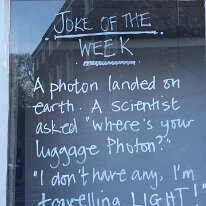 JOKE OF THE
WEEK
A photon landed on
earth. A scientist
asked "where's your
luggage Photon?"
"I don't have any, I'm
travelling LIGHT!"